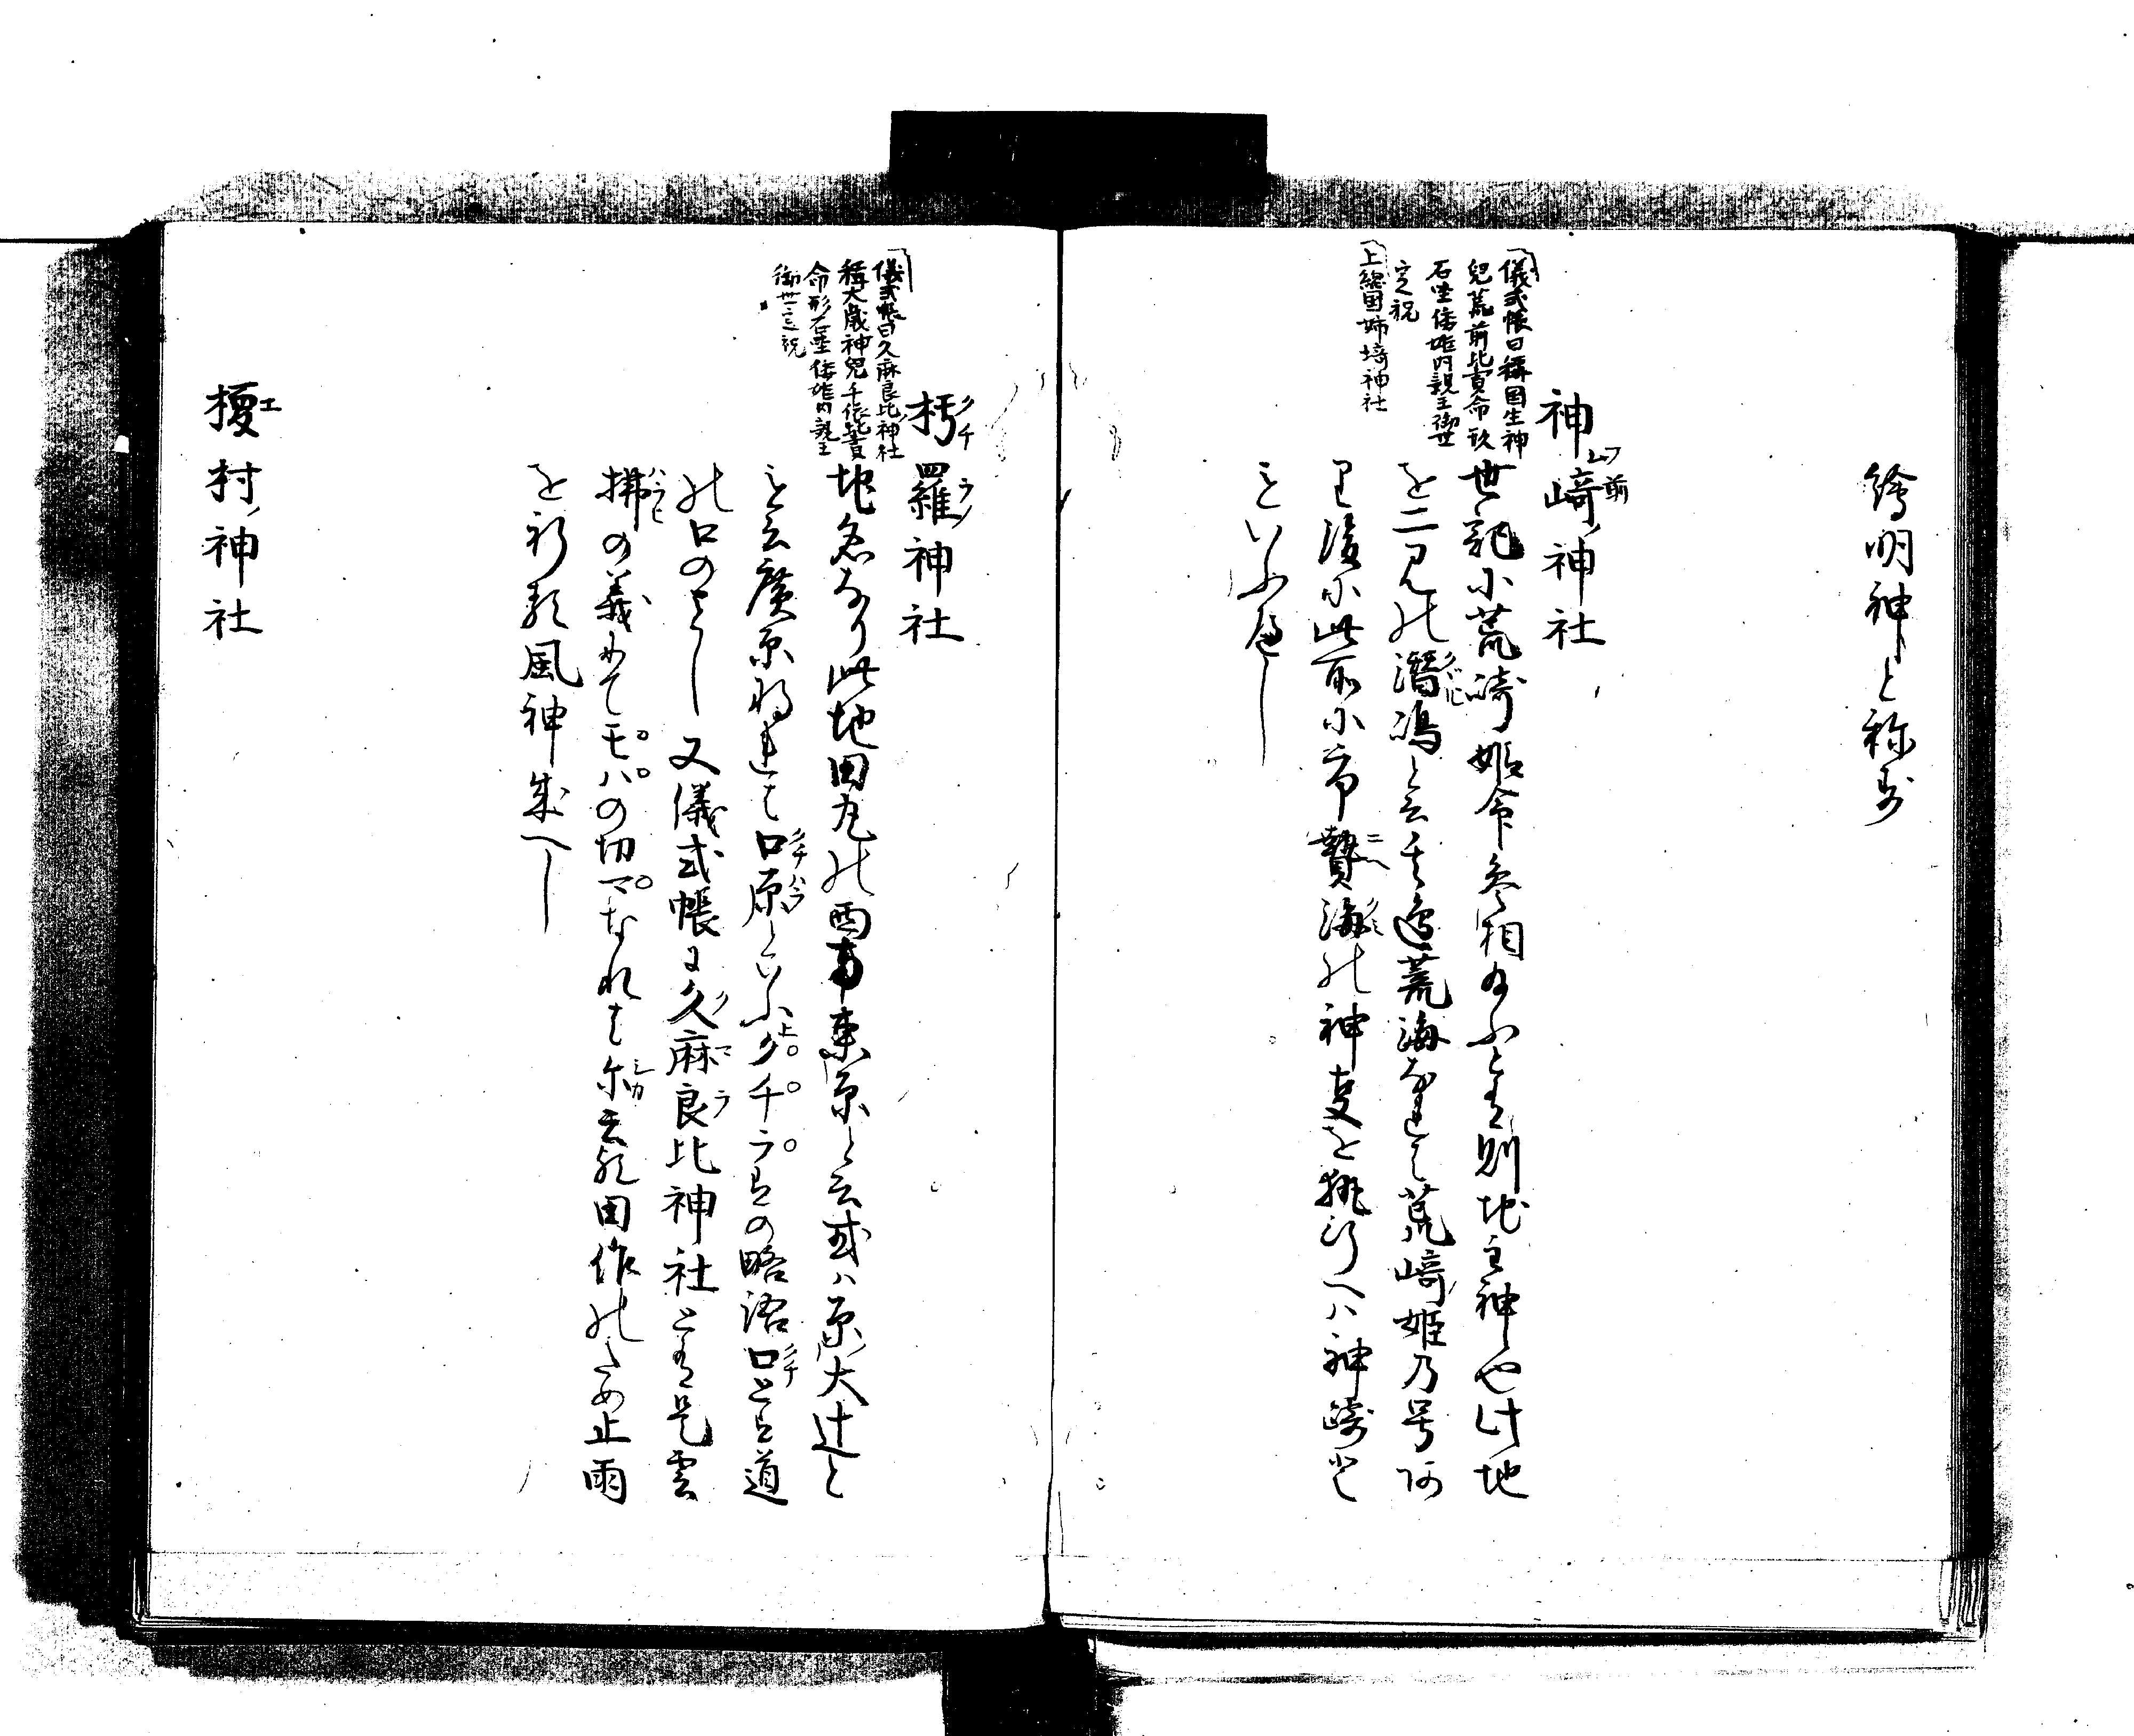 繪明神と称す
神崎ノ神社
前
儀式帳曰稱国生神
兒荒前比賣命形
石坐倭姫内親王御世
定祝
上総国姉埼神社
世記小荒崎姫命参相給ふと有則地主神也此地
を二見の潜嶋と云其邉荒海なれは荒崎姫乃号有
り後小此所小帝贄海の神事を執行へハ神崎と
もいふ歟し
朽羅ノ神社
クチ ラノ
儀式帳曰久麻良比神社
稱大歳神兒千依比賣
命形石坐倭姫内親王
御世定祝
地名なり此地田丸の西南東原と云或ハ原大辻と
も云廣原なれは口原といふクチラはの略語口とは道
の口のよし又儀式帳に久麻良比神社と有是雲
拂の義にてモハの切マなれは尓云歟田作のため止雨
を祈る風神成へし
榎村ノ神社
エ